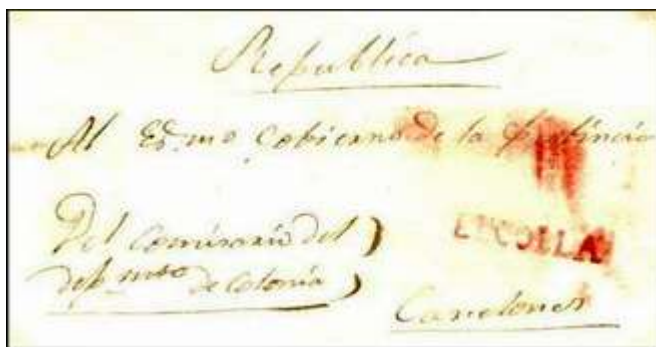 Republica
Al Ex.mo Gobierno de la Probincia
Del Comisario del
dep.mto de Colonia
Canelones